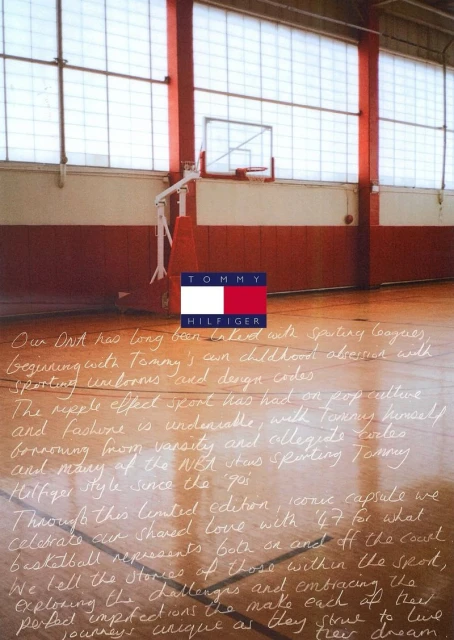 TOMMY
HILFIGER
Our DNA has long been linked with sporting leagues,
beginning with Tommy's own childhood obsession with
sporting uniforms and design codes
The ripple effect sport has had on pop culture
and fashion is undeniable, with Tommy himself
borrowing from varsity and collegiate codes
and many of the NBA stars sporting Tommy
Hilfiger style since the '90s
Through this limited edition, iconic capsule we
celebrate our shared love with '47 for what
basketball represents both on and off the court
We tell the stories of those within the sport,
exploring the challenges and embracing the
perfect imperfections the make each of their
journeys unique as they strive to live
their dream.